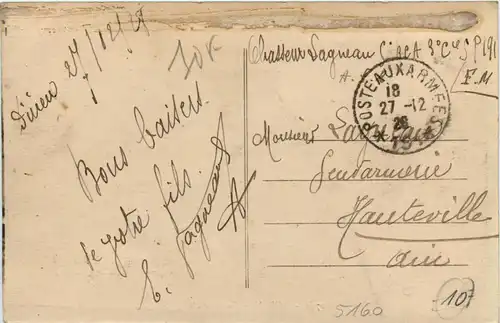 27/12/28
10F
Bons baisers
de votre fils.
E. Lagneau
Chasseur Lagneau
S P 191
F. M.
POSTE AUX ARMEES
18
27 -12
28
Monsieur Lagneau
Gendarmerie
Hauteville
Ain
5160
10